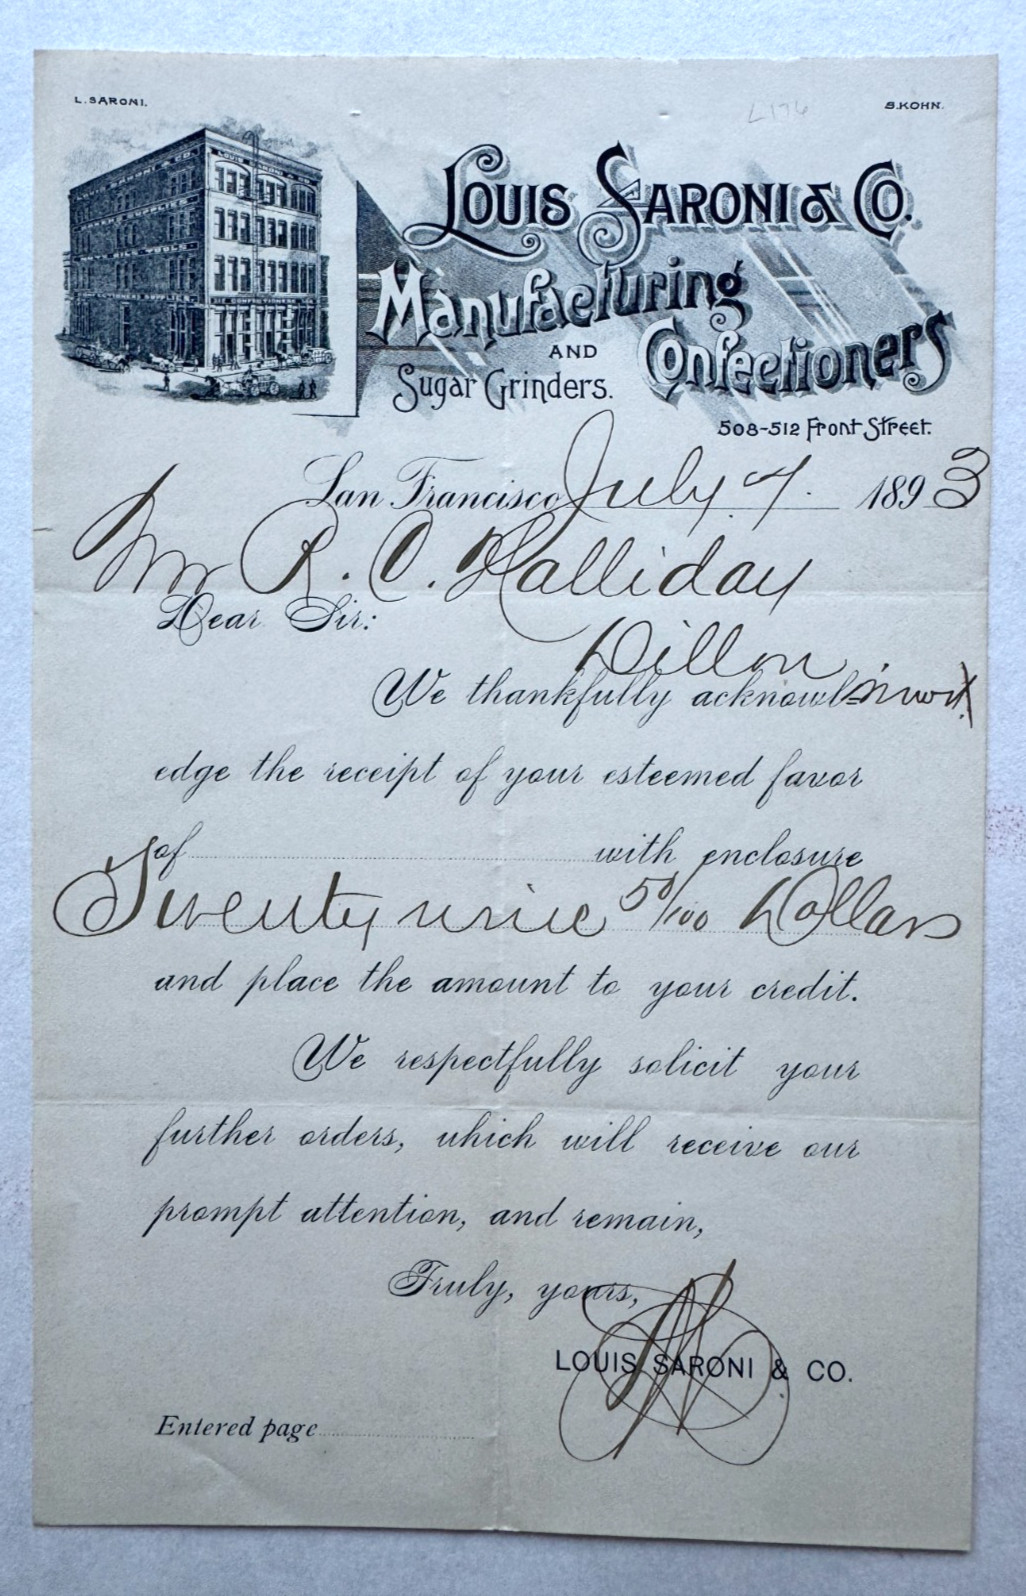 L. SARONI.
S. KOHN.
L176
LOUIS SARONI & CO.
LOUIS SARONI & CO.
Manufacturing
AND
Confectioners
Sugar Grinders.
508-512 Front Street.
San Francisco July 7. 1893
Mr R. C. Halliday
Dear Sir:
Dillon
We thankfully acknowl-
edge the receipt of your esteemed favor
of with enclosure
Twenty nine 50/100 Dollars
and place the amount to your credit.
We respectfully solicit your
further orders, which will receive our
prompt attention, and remain,
Truly, yours,
LOUIS SARONI & CO.
Entered page